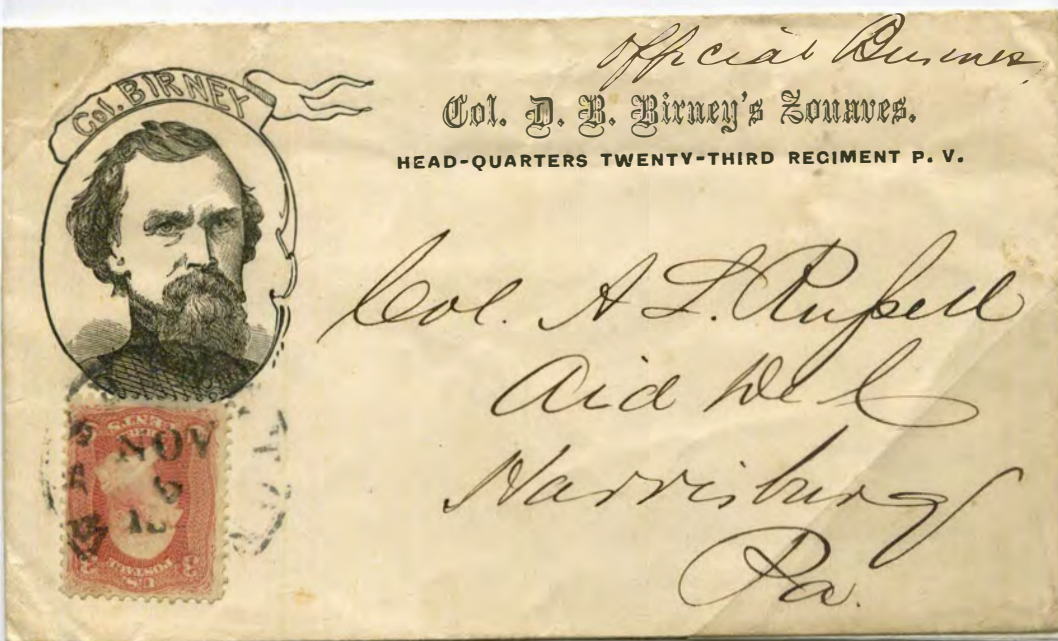 Official Business
Col. BIRNEY
Col. D. B. Birney's Zouaves.
HEAD-QUARTERS TWENTY-THIRD REGIMENT P. V.
Col. A L. Russell
Aid De C
Harrisburg
Pa.
NOV
U.S. POSTAGE
3 CENTS 3